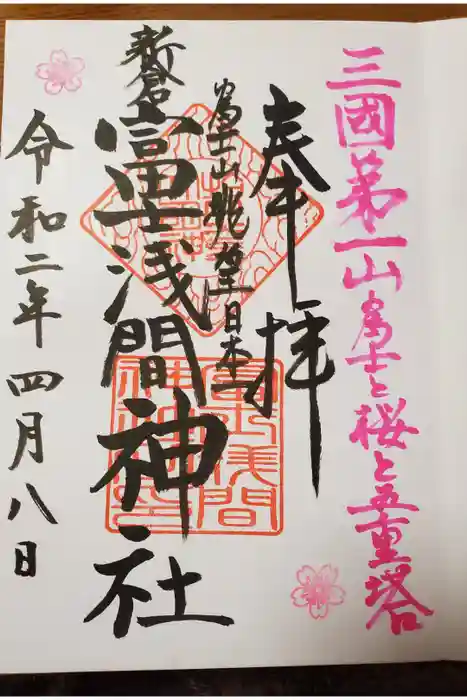 三國第一山富士と桜と五重塔
奉拝
富士山眺望日本一
新倉
富士浅間神社
令和二年四月八日